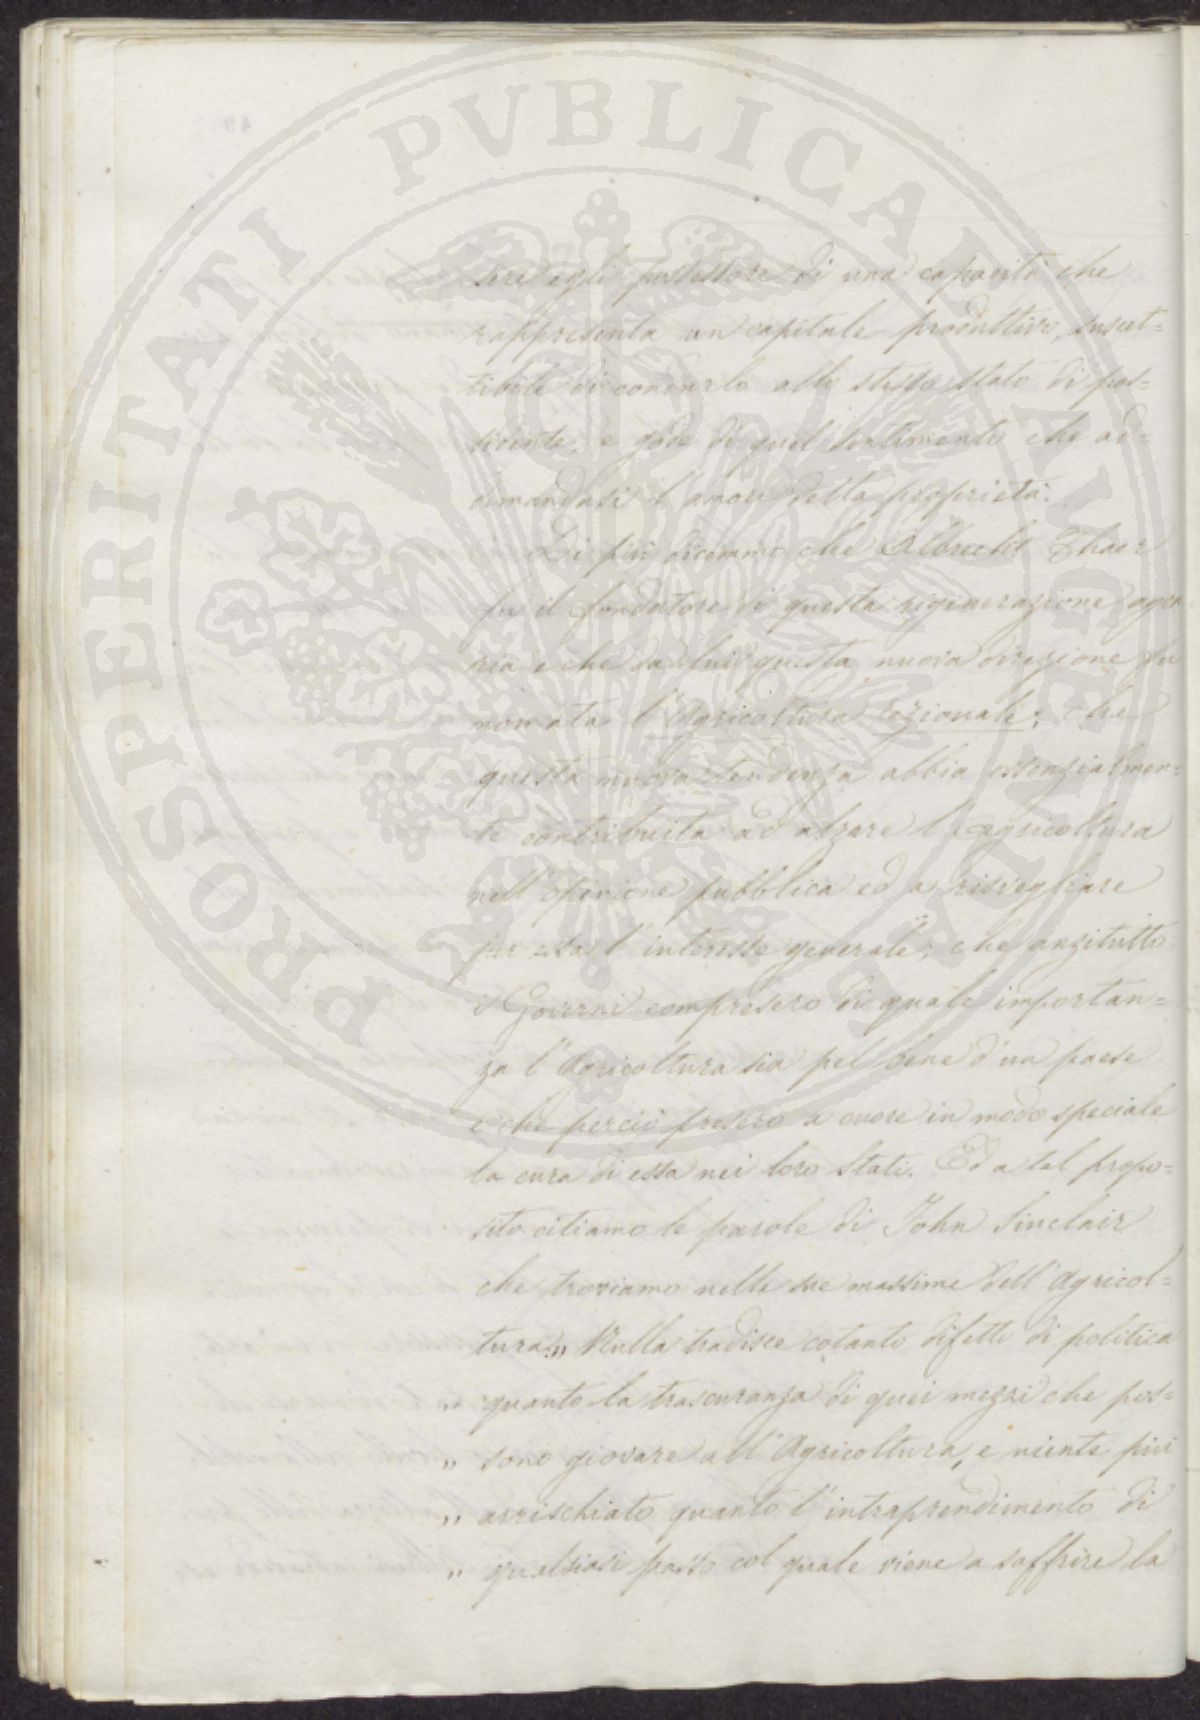 sere egli possessore di una capacità che
rappresenta un capitale produttivo, suscet=
tibile di condurlo allo stesso stato di pos=
sidente, e gode di quel sentimento che ad=
dimandasi l'amor della proprietà.
Di più dicemmo che Albrecht Thaer
fu il fondatore di questa rigenerazione agra
ria e che da lui questa nuova direzione fu
nomata l'Agricoltura razionale; che
questa nuova tendenza abbia essenzialmen=
te contribuita ad alzare l'agricoltura
nell'opinione pubblica ed a risvegliare
per essa l'interesse generale; che anzitutto
i Governi compresero di quale importan=
za l'Agricoltura sia pel bene d'un paese
e che perciò presero a cuore in modo speciale
la cura di essa nei loro Stati. Ed a tal propo=
sito citiamo le parole di John Sinclair
che troviamo nelle sue massime dell'Agricol=
tura: „ Nulla tradisce cotanto difetto di politica
„ quanto la trascuranza di quei mezzi che pos=
„ sono giovare all'Agricoltura, e niente più
„ arrischiato quanto l'intraprendimento di
„ qualsiasi passo col quale viene a soffrire la
PROSPERITATI PVBLICAE AVGENDAE